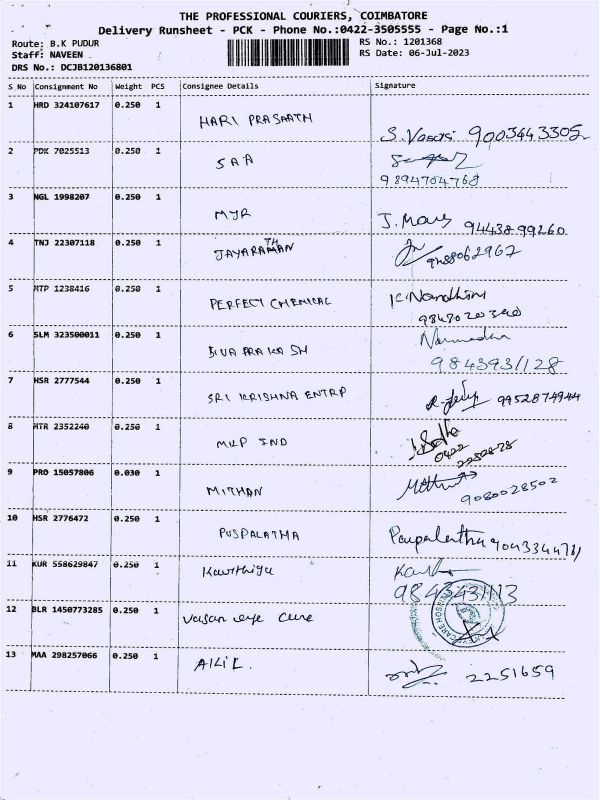 THE PROFESSIONAL COURIERS, COIMBATORE
Delivery Runsheet - PCK - Phone No.:0422-3505555 - Page No.:1
Route: B.K PUDUR RS No.: 1201368
Staff: NAVEEN RS Date: 06-Jul-2023
DRS No.: DCJB120136801
S No Consignment No Weight PCS Consignee Details Signature
1 HRD 324107617 0.250 1 HARI PRASAATH S. Vasasi 9003443305
2 PDK 7025513 0.250 1 SAA
9894704768
3 NGL 1998207 0.250 1 MYR J. Mary 94438 99260
4 TNJ 22307118 0.250 1 JAYARAMAN 9488062967
5 MTP 1238416 0.250 1 PERFECT CHEMICAL K. Nandhini
6 SLM 323500011 0.250 1 SIVA PRAKASH Narmadha
9843931128
7 HSR 2777544 0.250 1 SRI KRISHNA ENTRP 9952874944
8 MTR 2352240 0.250 1 MLP IND
0422
9 PRO 15057806 0.030 1 MITHAN
9080028502
10 HSR 2776472 0.250 1 PUSPALATHA
11 KUR 558629847 0.250 1 Kavithiya
9843431113
12 BLR 1450773285 0.250 1 vasan eye care
CARE HOSPITAL
13 MAA 298257066 0.250 1 2251659